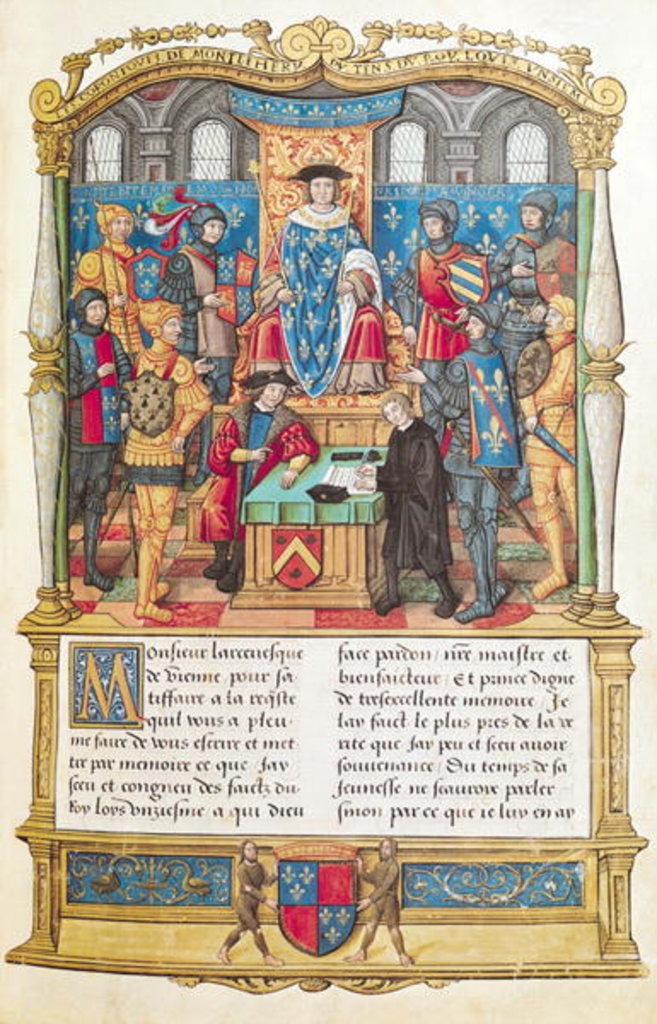 DE MONTLEHERY
DV TENS DV ROY LOVIS VNSIEME
Monsieur larceuesque
de vienne pour sa
tiffaire a la reqste
quil vous a pleu
me faire de vous escrire et met
tre par memoire ce que Jay
sceu et congneu des faictz du
Roy loys vnziesme a qui dieu
face pardon / nre maistre et
bienfaicteur / Et prince digne
de tresexcellente memoire / Je
lay faict le plus pres de la ve
rite que Jay peu et sceu auoir
souuenance / Du temps de sa
Jeunesse ne scauroye parler
sinon par ce que ie luy en ay